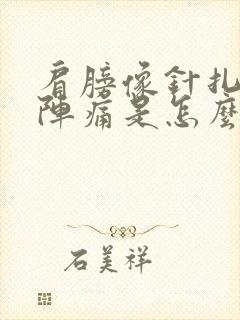 肩膀像針扎
陣痛是怎麼
石美祥